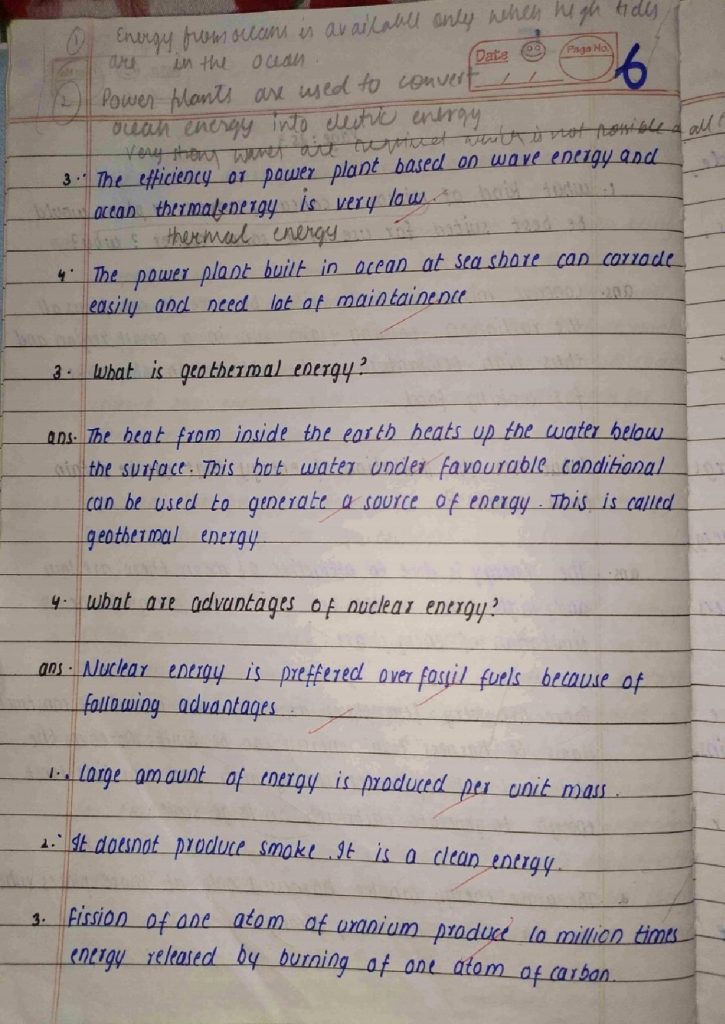 1 Energy from oceans is available only when high tides
are in the ocean
Date
Page No.
6
2 Power plants are used to convert
ocean energy into electric energy
very strong waves are required which is not possible a all t
3. The efficiency or power plant based on wave energy and
ocean thermal energy is very low
thermal energy
4. The power plant built in ocean at sea shore can corrode
easily and need lot of maintainence
3. What is geothermal energy?
ans. The heat from inside the earth heats up the water below
the surface. This hot water under favourable conditional
can be used to generate a source of energy. This is called
geothermal energy
4. What are advantages of nuclear energy?
ans. Nuclear energy is preffered over fossil fuels because of
following advantages
1. Large amount of energy is produced per unit mass.
2. It doesnot produce smoke. It is a clean energy.
3. Fission of one atom of uranium produce 10 million times
energy released by burning of one atom of carbon.